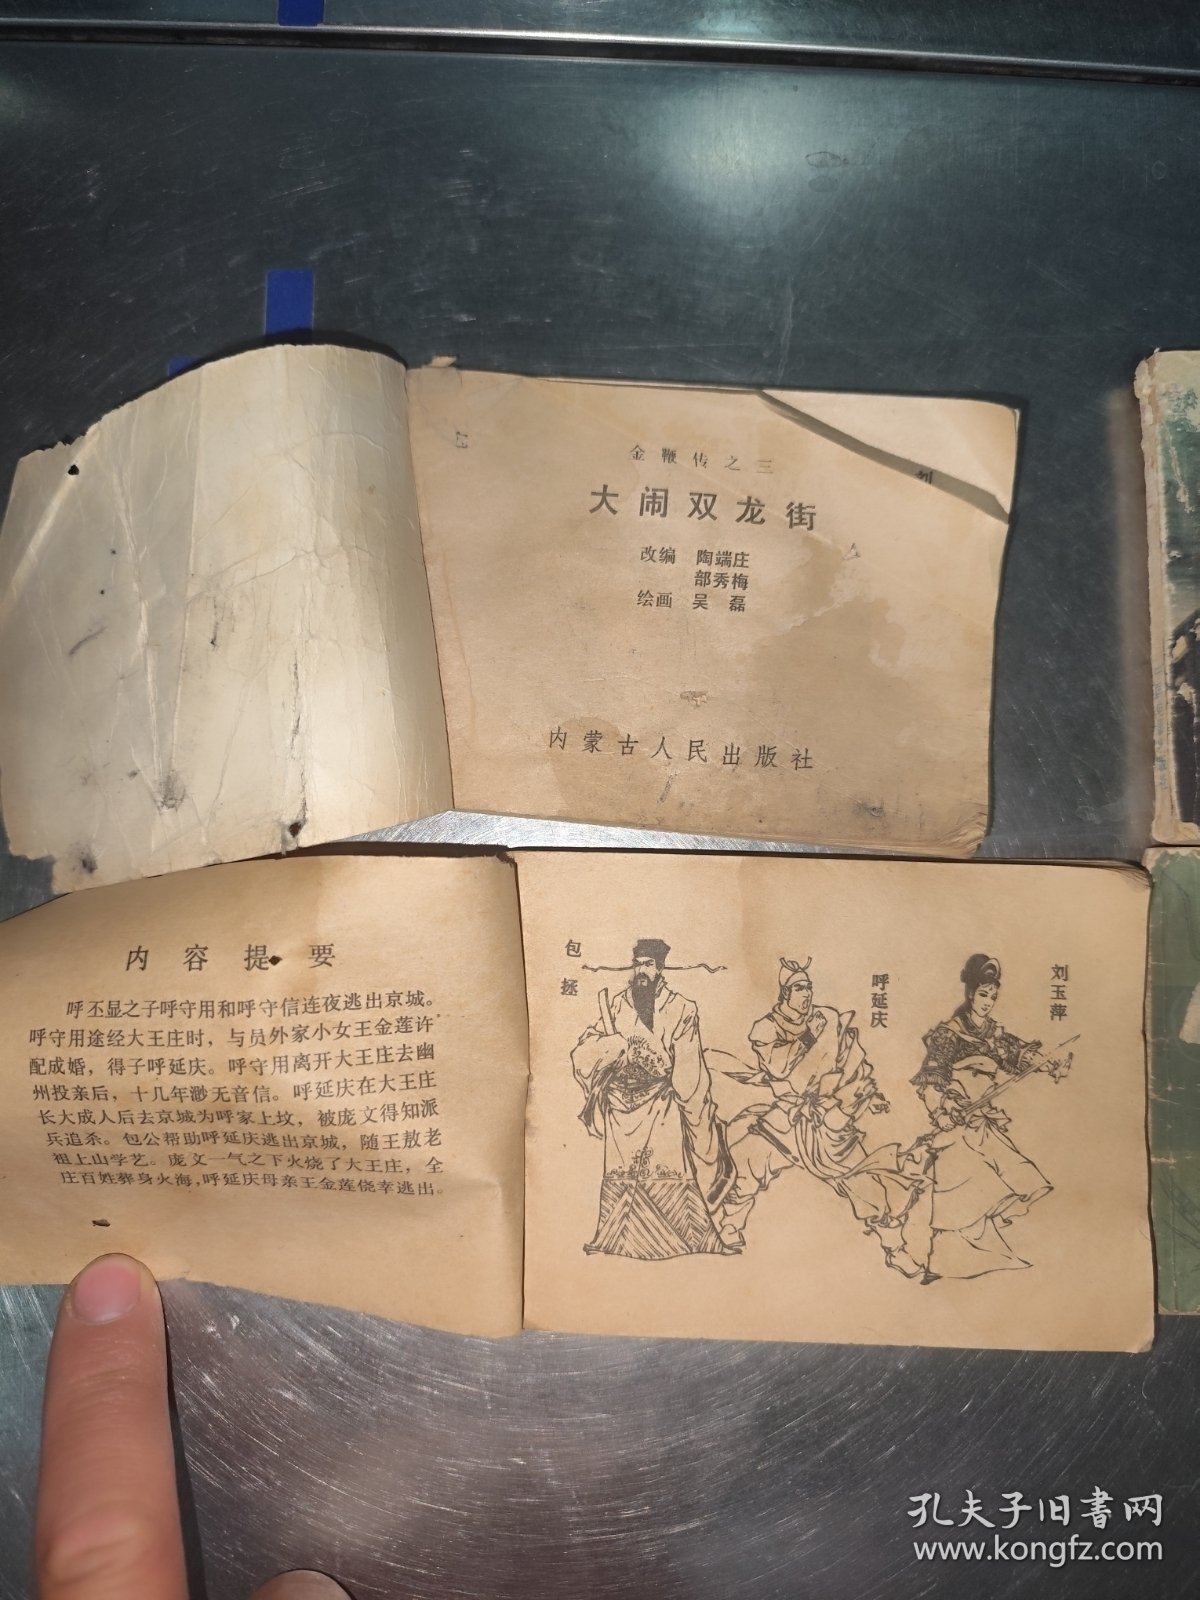 金鞭传之三
大闹双龙街
改编 陶端庄
部秀梅
绘画 吴磊
内蒙古人民出版社
刘
内容提要
呼丕显之子呼守用和呼守信连夜逃出京城。
呼守用途经大王庄时，与员外家小女王金莲许
配成婚，得子呼延庆。呼守用离开大王庄去幽
州投亲后，十几年渺无音信。呼延庆在大王庄
长大成人后去京城为呼家上坟，被庞文得知派
兵追杀。包公帮助呼延庆逃出京城，随王敖老
祖上山学艺。庞文一气之下火烧了大王庄，全
庄百姓葬身火海，呼延庆母亲王金莲侥幸逃出。
包拯
呼延庆
刘玉萍
孔夫子旧书网
www.kongfz.com